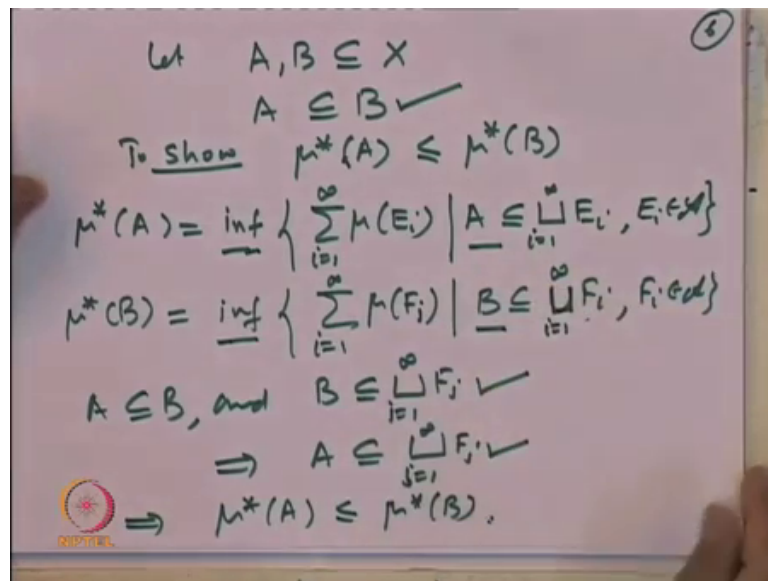 6
Let A, B ⊆ X
A ⊆ B ✓
To show μ*(A) ≤ μ*(B)
μ*(A) = inf { ∑_{i=1}^{∞} μ(E_i) | A ⊆ ⊔_{i=1}^{∞} E_i, E_i ∈ 𝒜}
μ*(B) = inf { ∑_{i=1}^{∞} μ(F_i) | B ⊆ ⊔_{i=1}^{∞} F_i, F_i ∈ 𝒜}
A ⊆ B, and B ⊆ ⊔_{i=1}^{∞} F_i ✓
⟹ A ⊆ ⊔_{j=1}^{∞} F_j ✓
⟹ μ*(A) ≤ μ*(B).
NPTEL